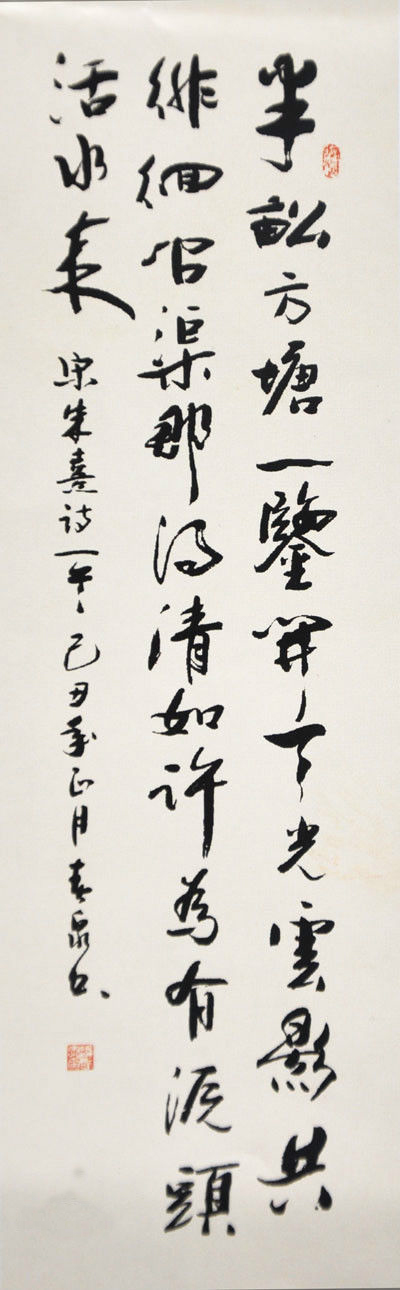 半畝方塘一鑒開天光雲影共
徘徊問渠那得清如許為有源頭
活水來
宋朱熹詩一首己丑年正月春泉書